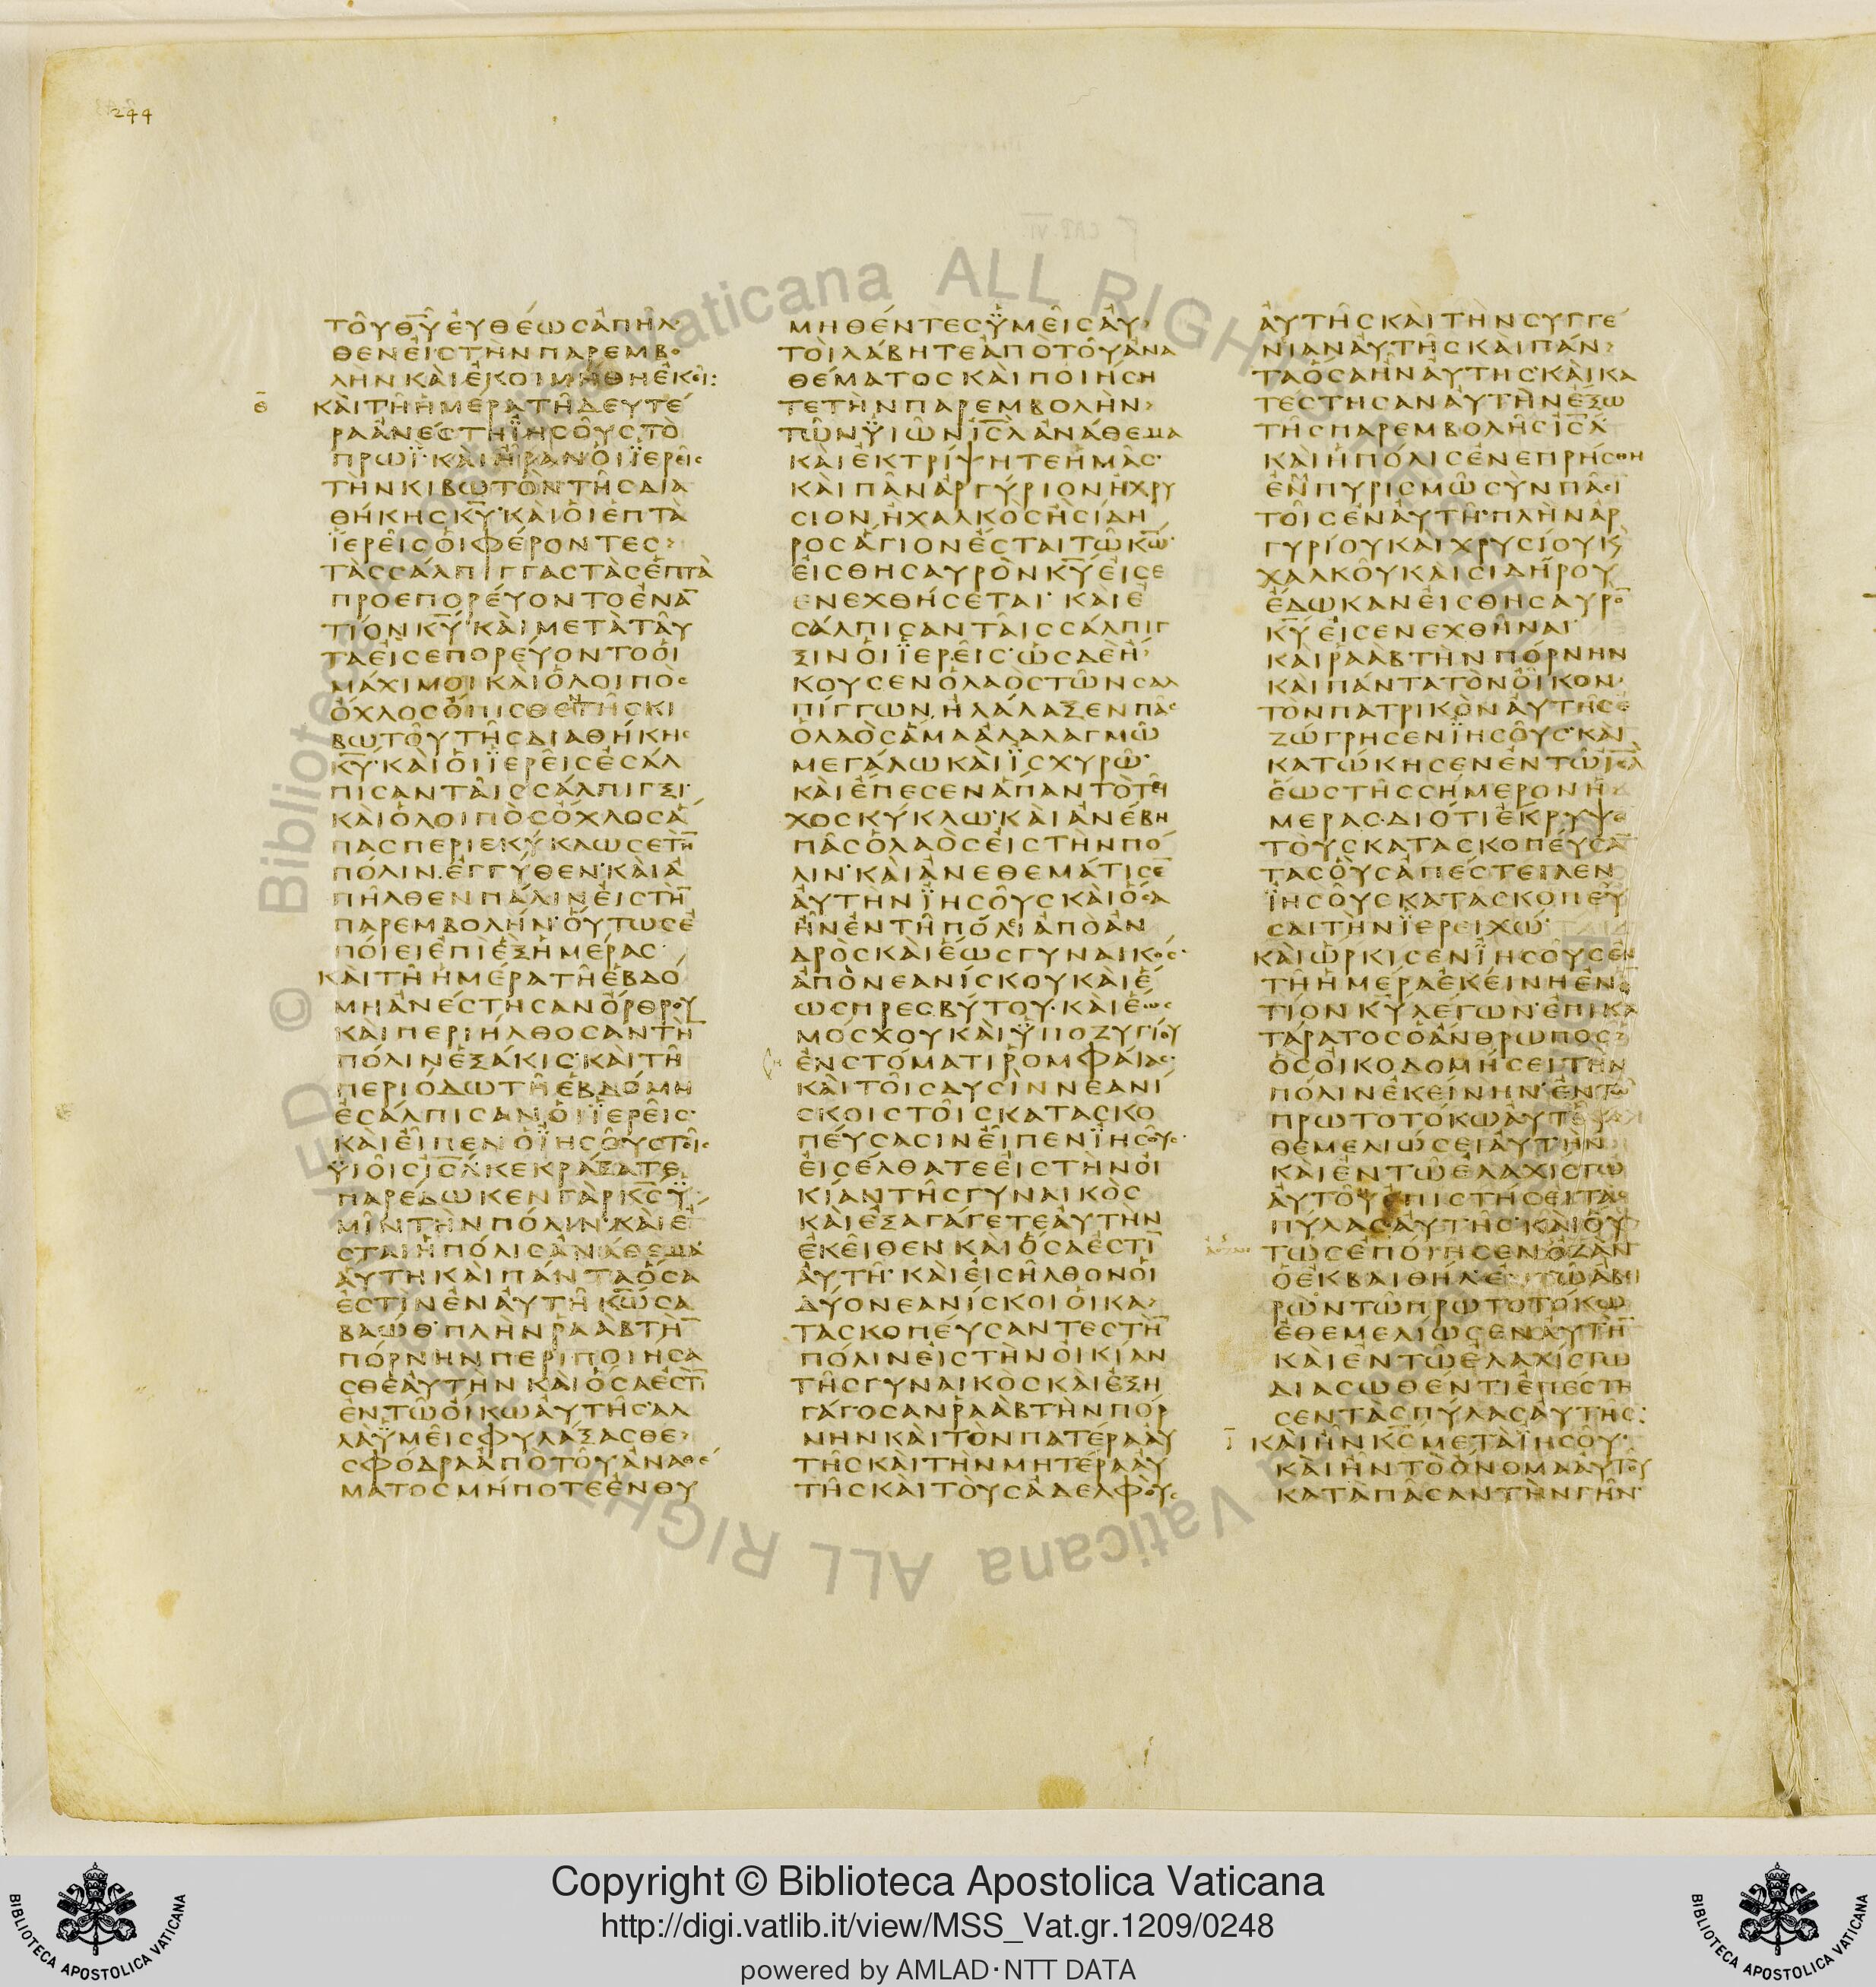 244
ΤΟΥΘΥΕΥΘΕΩΣΑΠΗΛ
ΘΕΝΕΙΣΤΗΝΠΑΡΕΜΒΟ
ΛΗΝΚΑΙΕΚΟΙΜΗΘΗΕΚΕΙ:
Θ ΚΑΙΤΗΗΜΕΡΑΤΗΔΕΥΤΕ
ΡΑΑΝΕΣΤΗΪΗΣΟΥΣΤΟ
ΠΡΩΪ·ΚΑΙΗΡΑΝΟΙΪΕΡΕΙΣ
ΤΗΝΚΙΒΩΤΟΝΤΗΣΔΙΑ
ΘΗΚΗΣΚΥ·ΚΑΙΟΙΕΠΤΑ
ΪΕΡΕΙΣΟΙΦΕΡΟΝΤΕΣ
ΤΑΣΣΑΛΠΙΓΓΑΣΤΑΣΕΠΤΑ
ΠΡΟΕΠΟΡΕΥΟΝΤΟΕΝΑ
ΤΙΟΝΚΥ·ΚΑΙΜΕΤΑΤΑΥ
ΤΑΕΙΣΕΠΟΡΕΥΟΝΤΟΟΙ
ΜΑΧΙΜΟΙΚΑΙΟΛΟΙΠΟΣ
ΟΧΛΟΣΟΠΙΣΘΕΝΤΗΣΚΙ
ΒΩΤΟΥΤΗΣΔΙΑΘΗΚΗΣ
ΚΥ·ΚΑΙΟΙΪΕΡΕΙΣΕΣΑΛ
ΠΙΣΑΝΤΑΙΣΣΑΛΠΙΓΞΙ·
ΚΑΙΟΛΟΙΠΟΣΟΧΛΟΣΑ
ΠΑΣΠΕΡΙΕΚΥΚΛΩΣΕΤΗ
ΠΟΛΙΝ·ΕΓΓΥΘΕΝ·ΚΑΙΑ
ΠΗΛΘΕΝΠΑΛΙΝΕΙΣΤΗ
ΠΑΡΕΜΒΟΛΗΝ·ΟΥΤΩΣΕ
ΠΟΙΕΙΕΠΙΕΞΗΜΕΡΑΣ·
ΚΑΙΤΗΗΜΕΡΑΤΗΕΒΔΟ
ΜΗΑΝΕΣΤΗΣΑΝΟΡΘΡΟΥ
ΚΑΙΠΕΡΙΗΛΘΟΣΑΝΤΗ
ΠΟΛΙΝΕΞΑΚΙΣ·ΚΑΙΤΗ
ΠΕΡΙΟΔΩΤΗΕΒΔΟΜΗ
ΕΣΑΛΠΙΣΑΝΟΙΪΕΡΕΙΣ·
ΚΑΙΕΙΠΕΝΟΪΗΣΟΥΣΤΟΙΣ
ΫΙΟΙΣΙΣΛ·ΚΕΚΡΑΞΑΤΕ
ΠΑΡΕΔΩΚΕΝΓΑΡΚΣΫ
ΜΙΝΤΗΝΠΟΛΙΝ·ΚΑΙΕ
ΣΤΑΙΗΠΟΛΙΣΑΝΑΘΕΜΑ
ΑΥΤΗΚΑΙΠΑΝΤΑΟΣΑ
ΕΣΤΙΝΕΝΑΥΤΗΚΩΣΑ
ΒΑΩΘ·ΠΛΗΝΡΑΑΒΤΗ
ΠΟΡΝΗΝΠΕΡΙΠΟΙΗΣΑ
ΣΘΕΑΥΤΗΝΚΑΙΟΣΑΕΣΤΙ
ΕΝΤΩΟΙΚΩΑΥΤΗΣ·ΑΛ
ΛΑΫΜΕΙΣΦΥΛΑΞΑΣΘΕ
ΣΦΟΔΡΑΑΠΟΤΟΥΑΝΑΘΕ
ΜΑΤΟΣΜΗΠΟΤΕΕΝΘΥ
ΜΗΘΕΝΤΕΣΫΜΕΙΣΑΥ
ΤΟΙΛΑΒΗΤΕΑΠΟΤΟΥΑΝΑ
ΘΕΜΑΤΟΣΚΑΙΠΟΙΗΣΗ
ΤΕΤΗΝΠΑΡΕΜΒΟΛΗΝ
ΤΩΝΫΙΩΝΙΣΛΑΝΑΘΕΜΑ
ΚΑΙΕΚΤΡΙΨΗΤΕΗΜΑΣ·
ΚΑΙΠΑΝΑΡΓΥΡΙΟΝΗΧΡΥ
ΣΙΟΝΗΧΑΛΚΟΣΗΣΙΔΗ
ΡΟΣΑΓΙΟΝΕΣΤΑΙΤΩΚΩ·
ΕΙΣΘΗΣΑΥΡΟΝΚΥΕΙΣΕ
ΕΝΕΧΘΗΣΕΤΑΙ·ΚΑΙΕ
ΣΑΛΠΙΣΑΝΤΑΙΣΣΑΛΠΙΓ
ΞΙΝΟΙΪΕΡΕΙΣ·ΩΣΔΕΗ
ΚΟΥΣΕΝΟΛΑΟΣΤΩΝΣΑΛ
ΠΙΓΓΩΝ,ΗΛΑΛΑΞΕΝΠΑΣ
ΟΛΑΟΣΑΜΑΑΛΑΛΑΓΜΩ
ΜΕΓΑΛΩΚΑΙΪΣΧΥΡΩ·
ΚΑΙΕΠΕΣΕΝΑΠΑΝΤΟΤΕΙ
ΧΟΣΚΥΚΛΩ·ΚΑΙΑΝΕΒΗ
ΠΑΣΟΛΑΟΣΕΙΣΤΗΝΠΟ
ΛΙΝ·ΚΑΙΑΝΕΘΕΜΑΤΙΣΕ
ΑΥΤΗΝΪΗΣΟΥΣΚΑΙΟΣΑ
ΗΝΕΝΤΗΠΟΛΕΙΑΠΟΑΝ
ΔΡΟΣΚΑΙΕΩΣΓΥΝΑΙΚΟΣ·
ΑΠΟΝΕΑΝΙΣΚΟΥΚΑΙΕ
ΩΣΠΡΕΣΒΥΤΟΥ·ΚΑΙΕΩΣ
ΜΟΣΧΟΥΚΑΙΫΠΟΖΥΓΙΟΥ
ΕΝΣΤΟΜΑΤΙΡΟΜΦΑΙΑΣ·
ΚΑΙΤΟΙΣΔΥΣΙΝΝΕΑΝΙ
ΣΚΟΙΣΤΟΙΣΚΑΤΑΣΚΟ
ΠΕΥΣΑΣΙΝΕΙΠΕΝΪΗΣΟΥΣ·
ΕΙΣΕΛΘΑΤΕΕΙΣΤΗΝΟΙ
ΚΙΑΝΤΗΣΓΥΝΑΙΚΟΣ
ΚΑΙΕΞΑΓΑΓΕΤΕΑΥΤΗΝ
ΕΚΕΙΘΕΝΚΑΙΟΣΑΕΣΤΙ
ΑΥΤΗ·ΚΑΙΕΙΣΗΛΘΟΝΟΙ
ΔΥΟΝΕΑΝΙΣΚΟΙΟΙΚΑ
ΤΑΣΚΟΠΕΥΣΑΝΤΕΣΤΗ
ΠΟΛΙΝΕΙΣΤΗΝΟΙΚΙΑΝ
ΤΗΣΓΥΝΑΙΚΟΣΚΑΙΕΞΗ
ΓΑΓΟΣΑΝΡΑΑΒΤΗΝΠΟΡ
ΝΗΝΚΑΙΤΟΝΠΑΤΕΡΑΑΥ
ΤΗΣΚΑΙΤΗΝΜΗΤΕΡΑΑΥ
ΤΗΣΚΑΙΤΟΥΣΑΔΕΛΦΟΥΣ
ΑΥΤΗΣΚΑΙΤΗΝΣΥΓΓΕ
ΝΙΑΝΑΥΤΗΣΚΑΙΠΑΝ
ΤΑΟΣΑΗΝΑΥΤΗΣ·ΚΑΙΚΑ
ΤΕΣΤΗΣΑΝΑΥΤΗΝΕΞΩ
ΤΗΣΠΑΡΕΜΒΟΛΗΣΙΣΛ
ΚΑΙΗΠΟΛΙΣΕΝΕΠΡΗΣΘΗ
ΕΝΠΥΡΙΣΜΩΣΥΝΠΑΣΙ
ΤΟΙΣΕΝΑΥΤΗ·ΠΛΗΝΑΡ
ΓΥΡΙΟΥΚΑΙΧΡΥΣΙΟΥΚ
ΧΑΛΚΟΥΚΑΙΣΙΔΗΡΟΥ
ΕΔΩΚΑΝΕΙΣΘΗΣΑΥΡΟ
ΚΥΕΙΣΕΝΕΧΘΗΝΑΙ·
ΚΑΙΡΑΑΒΤΗΝΠΟΡΝΗΝ
ΚΑΙΠΑΝΤΑΤΟΝΟΙΚΟΝ
ΤΟΝΠΑΤΡΙΚΟΝΑΥΤΗΣΕ
ΖΩΓΡΗΣΕΝΪΗΣΟΥΣ·ΚΑΙ
ΚΑΤΩΚΗΣΕΝΕΝΤΩΙΣΛ
ΕΩΣΤΗΣΣΗΜΕΡΟΝΗ
ΜΕΡΑΣ·ΔΙΟΤΙΕΚΡΥΨΕ
ΤΟΥΣΚΑΤΑΣΚΟΠΕΥΣΑ
ΤΑΣΟΥΣΑΠΕΣΤΕΙΛΕΝ
ΪΗΣΟΥΣΚΑΤΑΣΚΟΠΕΥ
ΣΑΙΤΗΝΪΕΡΕΙΧΩ·
ΚΑΙΩΡΚΙΣΕΝΪΗΣΟΥΣΕΝ
ΤΗΗΜΕΡΑΕΚΕΙΝΗΕΝΑ
ΤΙΟΝΚΥΛΕΓΩΝ·ΕΠΙΚΑ
ΤΑΡΑΤΟΣΟΑΝΘΡΩΠΟΣ
ΟΣΟΙΚΟΔΟΜΗΣΕΙΤΗΝ
ΠΟΛΙΝΕΚΕΙΝΗΝ·ΕΝΤΩ
ΠΡΩΤΟΤΟΚΩΑΥΤΟΥ
ΘΕΜΕΛΙΩΣΕΙΑΥΤΗΝ
ΚΑΙΕΝΤΩΕΛΑΧΙΣΤΩ
ΑΥΤΟΥΕΠΙΣΤΗΣΕΙΤΑΣ
ΠΥΛΑΣΑΥΤΗΣ·ΚΑΙΟΥ
ΤΩΣΕΠΟΙΗΣΕΝΟΖΑΝ
ΟΕΚΒΑΙΘΗΛΕ·ΕΝΤΩΑΒΙ
ΡΩΝΤΩΠΡΩΤΟΤΟΚΩ
ΕΘΕΜΕΛΙΩΣΕΝΑΥΤΗ
ΚΑΙΕΝΤΩΕΛΑΧΙΣΤΩ
ΔΙΑΣΩΘΕΝΤΙΕΠΕΣΤΗ
ΣΕΝΤΑΣΠΥΛΑΣΑΥΤΗΣ:
Ι ΚΑΙΗΝΚΣΜΕΤΑΪΗΣΟΥ·
ΚΑΙΗΝΤΟΟΝΟΜΑΑΥΤΟΥ
ΚΑΤΑΠΑΣΑΝΤΗΝΓΗΝ·
Copyright © Biblioteca Apostolica Vaticana
http://digi.vatlib.it/view/MSS_Vat.gr.1209/0248
powered by AMLAD·NTT DATA
BIBLIOTECA APOSTOLICA VATICANA
BIBLIOTECA APOSTOLICA VATICANA